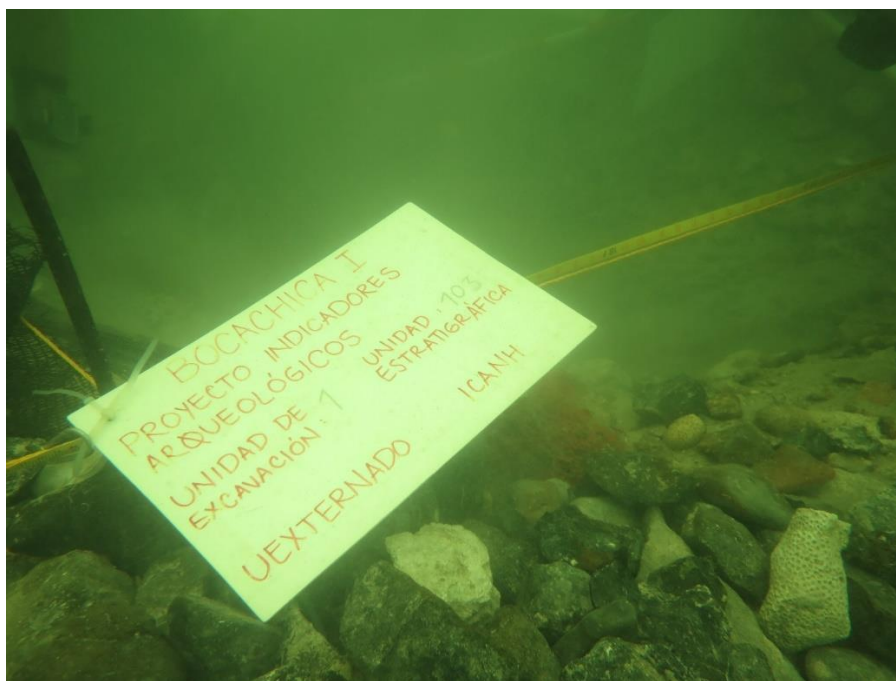 BOCACHICA I
PROYECTO INDICADORES
ARQUEOLÓGICOS
UNIDAD DE
EXCAVACIÓN: 1
UNIDAD: 103
ESTRATIGRÁFICA
UEXTERNADO
ICANH